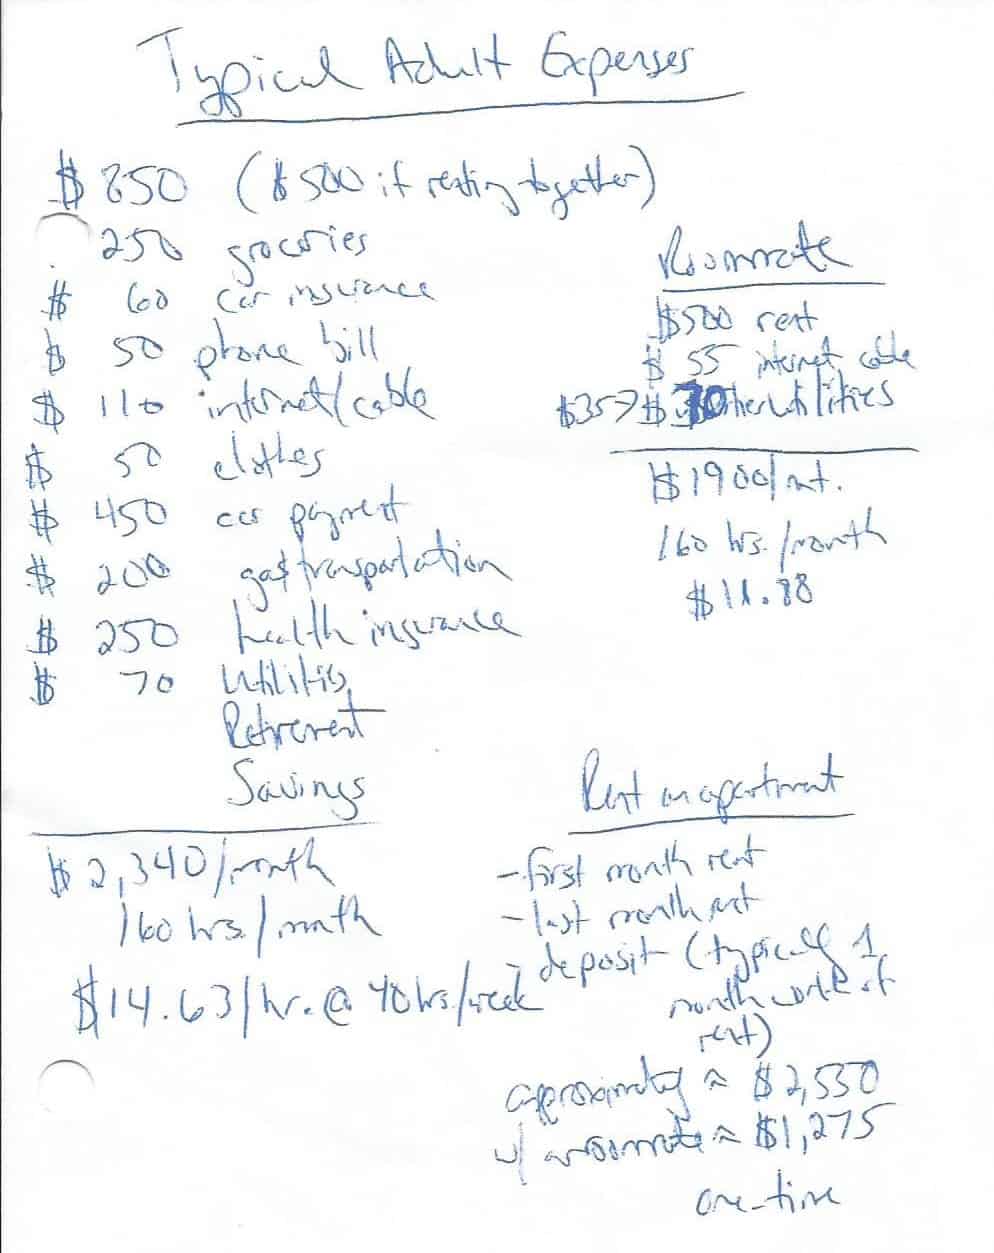 Typical Adult Expenses
$ 850 ($500 if renting together)
250 groceries
$ 60 car insurance
$ 50 phone bill
$ 110 internet/cable
$ 50 clothes
$ 450 car payment
$ 200 gas/transportation
$ 250 health insurance
$ 70 Utilities
Retirement
Savings
$2,340/month
160 hrs./month
$14.63/hr. @ 40 hrs/week
Roommate
$500 rent
$ 55 internet cable
$35→$ 70 other utilities
$1900/mt.
160 hrs./month
$11.88
Rent an apartment
- first month rent
- last month rent
- deposit (typically 1
month worth of
rent)
approximately ≈ $2,550
w/ a roommate ≈ $1,275
one-time